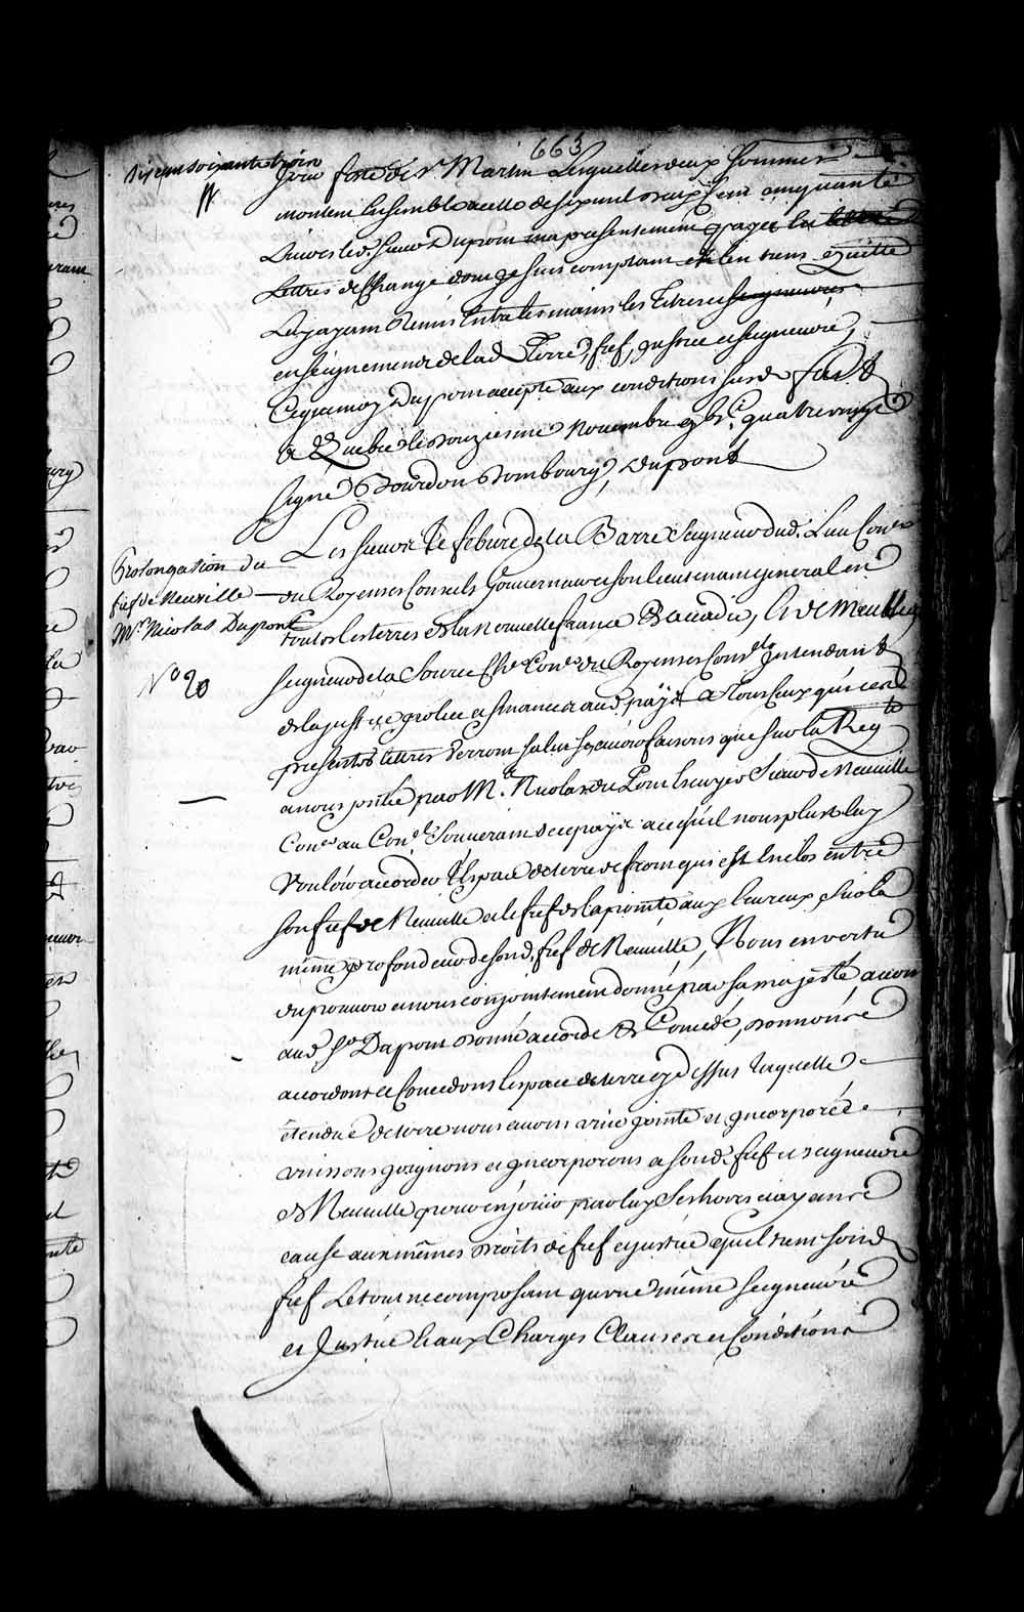 663
six cent soixante trois
jour feste de St Martin Lesquelles deux sommes
montent Ensemble a celle de six mil deux Cent cinquante
Livres led. sieur Dupont ma presentement payer en
Lettres de Change dont je suis comptant et len tiens quitte
Luy ayant Remis Entre les mains les Titres et
enseignemens de lad Terre, fief, justice et seigneurie,
Ce que moy Dupont accepte aux conditions susd fait
a Quebec le douziesme Novembre gbi.c quatrevingt
signé Bourdon Dombourg, Dupont
Prolongation du
fief de Neuville
Mr. Nicolas Dupont
No 20
Les sieurs Le febure de la Barre Seigneur dud. Lieu Coner
du Roy en ses Conseils Gouverneur et son lieutenant general en
toutes les terres de la Nouvelle france & accadie, Et de Meulles
seigneur de la Source Cher Coner du Roy en ses Conls Intendant
de la justice police et finances aud pays A Tous Ceux qui ces
presentes lettres verront salut sçavoir faisons que sur la Reqte
a nous pntée par Mr. Nicolas du Pont Escuyer Sieur de Neuville
Coner au Conel. Souverain de ce pays a ce qu'il nous plut luy
Vouloir accorder l'Espace de terre de front qui est Enclos entre
son fief de Neuville et le fief de la pointe aux Escureux sur la
même profondeur de sond. fief de Neuville, Nous en vertu
du pouvoir a nous conjointement donné par sa majesté avons
aud. Sr Dupont donné accordé & Concedé, donnons
accordons et Concedons l'espace de terre cy dessus laquelle
étendüe de terre nous avons unie jointe et incorporée
unissons joignons et incorporons a sond. fief et seigneurie
de Neuville pour en joüir par luy Ses hoirs et ayans
cause aux mêmes droits de fief et justice qu'il tient sond
fief Le tout ne composant qu'une même seigneurie
et Justice Et aux Charges Clauses et Conditions